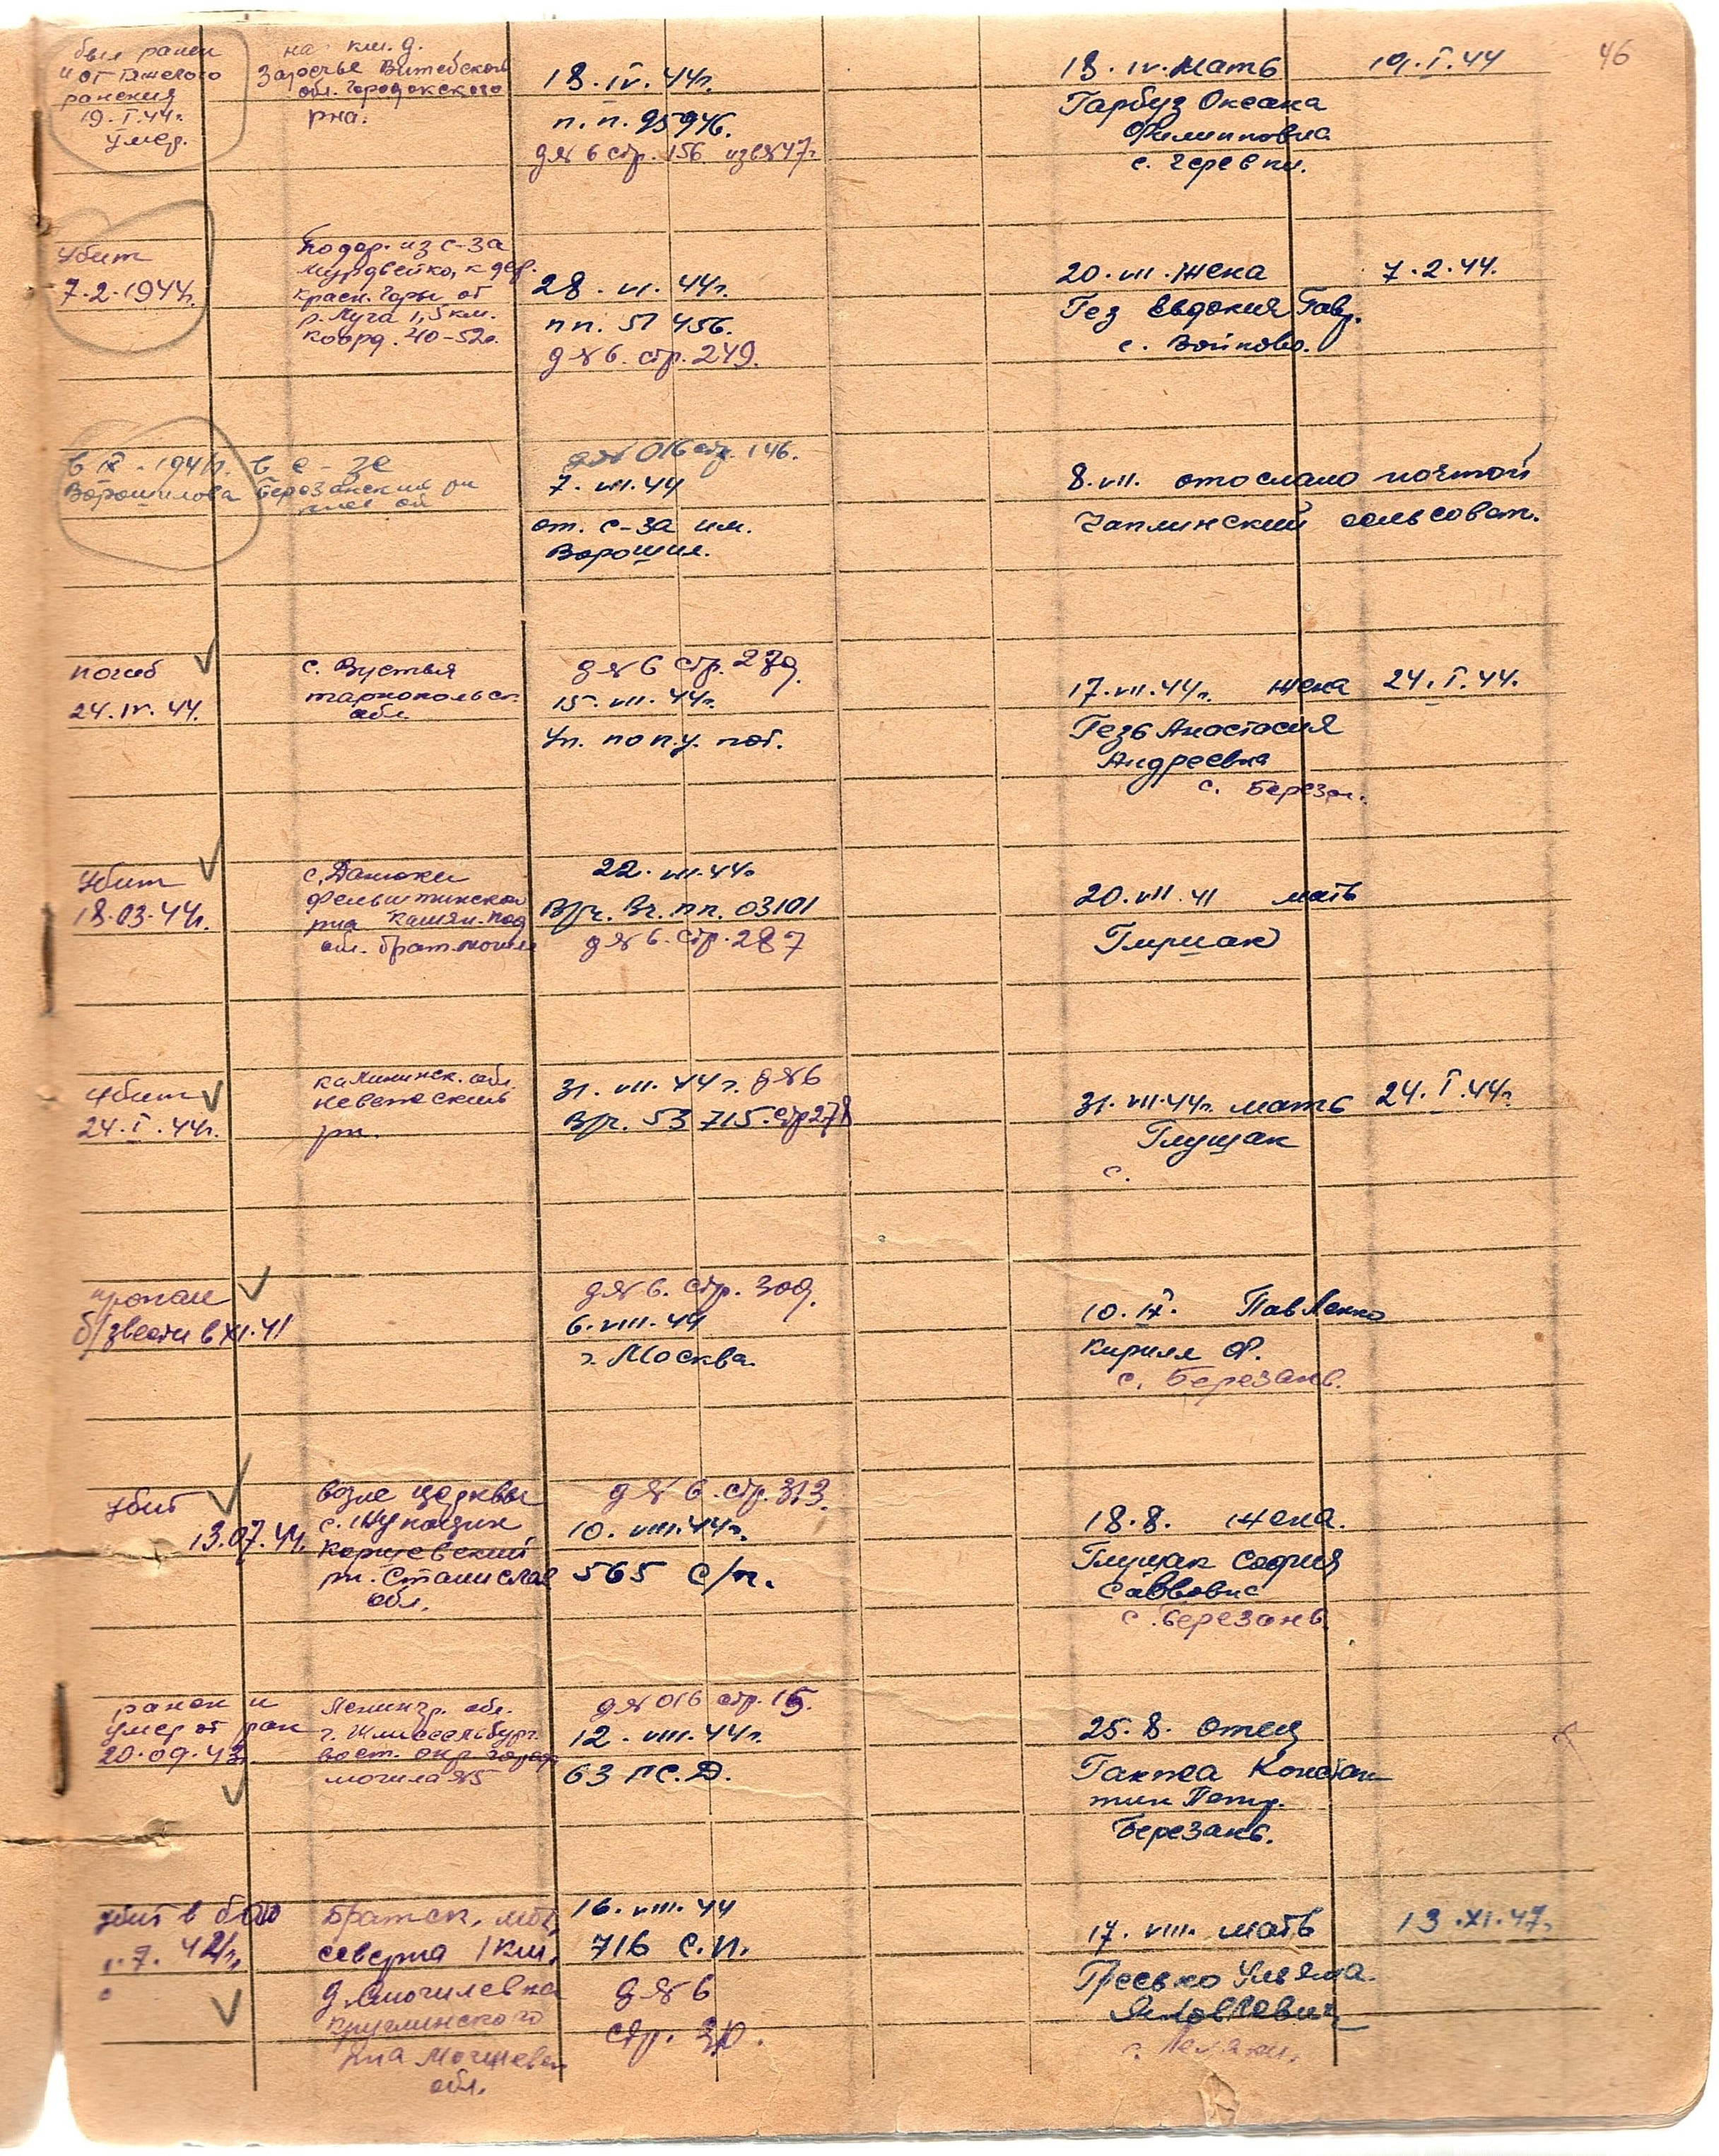 46
был ранен
и от тяжелого
ранения
19.I.44г.
умер.
на км. д.
Заречье Витебской
обл. Городокского
рна.
18.IV.44г.
п.п. 95946.
д№6 стр. 156 изв№47г.
18.IV. Мать
Гарбуз Оксана
Филипповна
с. Черевки.
19.I.44
Убит
7.2.1944г.
Подор. из с-за
к дер.
Красн. Горы от
р. Луга 1,5 км.
Коорд. 40-52а.
28.VI.44г.
пп. 51456.
д№6. стр. 249.
20.VII. Жена
Гез Евдокия Гавр.
с. Войково.
7.2.44.
в IX-1941г.
Ворошилова
в с-зе
Березанский рн
д№016 стр. 146.
7.VII.44
от. с-за им.
Ворошил.
8.VII. отослано почтой
Чаплинский сельсовет.
погиб
24.IV.44.
с. Вустья
тарнопольск.
обл.
д№6 стр. 279.
15.VII.44г.
Уп. по п.у. пот.
17.VII.44г. Жена
Гезь Анастасия
Андреевна
с. Березан.
24.I.44.
Убит
18.03.44г.
с. Данюки
Фельштинской
рна Камян-под
обл. брат.могил
22.VII.44г.
Вруч. Вч. пп. 03101
д№6. стр. 287
20.VII.41 мать
Глущак
Убит
24.I.44г.
калининск. обл.
Невельский
рн.
31.VII.44г. д№6
Вруч. 53715. стр278
31.VII.44г. мать
Глущак
с.
24.I.44г.
пропал
б/звести в XI.41
д№6. стр. 309.
6.VIII.44
г. Москва.
10.IX. Павленко
Кирилл Ф.
с. Березань.
Убит
13.07.44.
возле церквы
с.
рн. Станислав
обл.
д№6. стр. 313.
10.VIII.44г.
565 с/п.
18.8. Жена.
Глущак София
Саввовна
с. Березань.
ранен и
умер от ран
20.09.43.
Ленингр. обл.
г. Шлиссельбург.
вост. окр. города
могила №5
д№016 стр. 15.
12.VIII.44г.
63 гс.Д.
25.8. Отец
Гакжа Констан
тин Петр.
Березань.
убит в бою
7.42г.
Братск. мог.
северна 1 км.
д. Могилевка
Круглинского
рна Могилевск
обл.
16.VIII.44
716 с.п.
д№6
стр.
17.VIII. мать
Гресько Ульяна.
Яковлевич
13.XI.47.